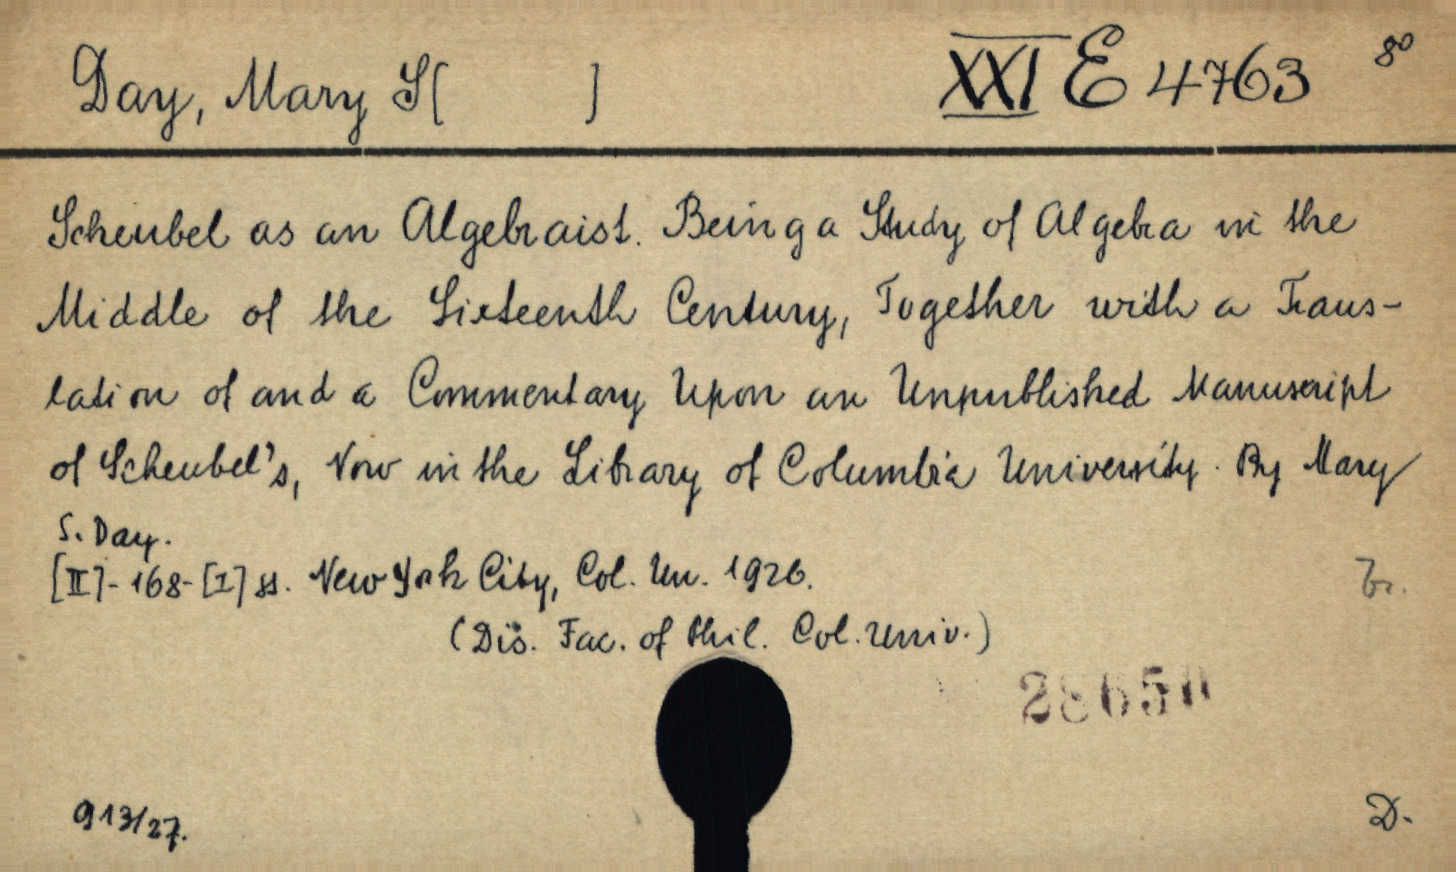 Day, Mary S[ ] XXI E 4763 8°
Scheubel as an Algebraist. Being a Study of Algebra in the
Middle of the Sixteenth Century, Together with a Trans-
lation of and a Commentary Upon an Unpublished Manuscript
of Scheubel's, Now in the Library of Columbia University. By Mary
S. Day.
[II]-168-[I] ss. New York City, Col. Un. 1926.
(Dis. Fac. of Phil. Col. Univ.)
28650
913/27. D.